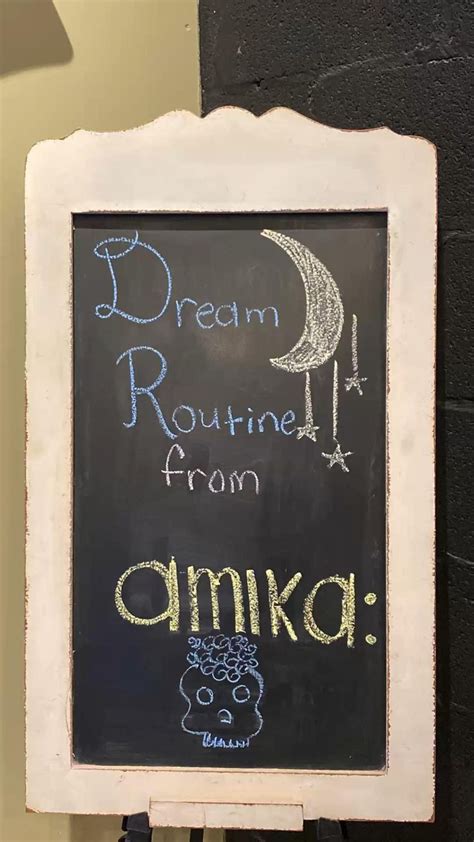 Dream
Routine
from
amika: